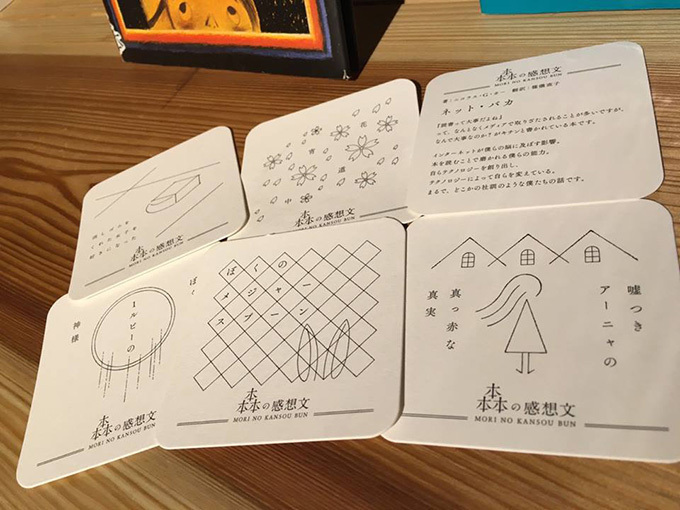 好きになった
森の感想文
MORI NO KANSOU BUN
花
宵
道
中
森の感想文
MORI NO KANSOU BUN
森の感想文
MORI NO KANSOU BUN
著：ニコラス・G・カー 翻訳：篠儀直子
ネット・バカ
『読書って大事だよね』
って、なんとなくメディアで取りざたされることが多いですが、
なんで大事なのか？がキチンと書かれている本です。
インターネットが僕らの脳に及ぼす影響。
本を読むことで磨かれる僕らの能力。
自らテクノロジーを創り出し、
テクノロジーによって自らを変えている。
まるで、どこかの社訓のような僕たちの話です。
1ルピーの
神様
ぼく
森の感想文
MORI NO KANSOU BUN
ぼくの
メジャー
スプーン
森の感想文
MORI NO KANSOU BUN
嘘つき
アーニャの
真っ赤な
真実
森の感想文
MORI NO KANSOU BUN